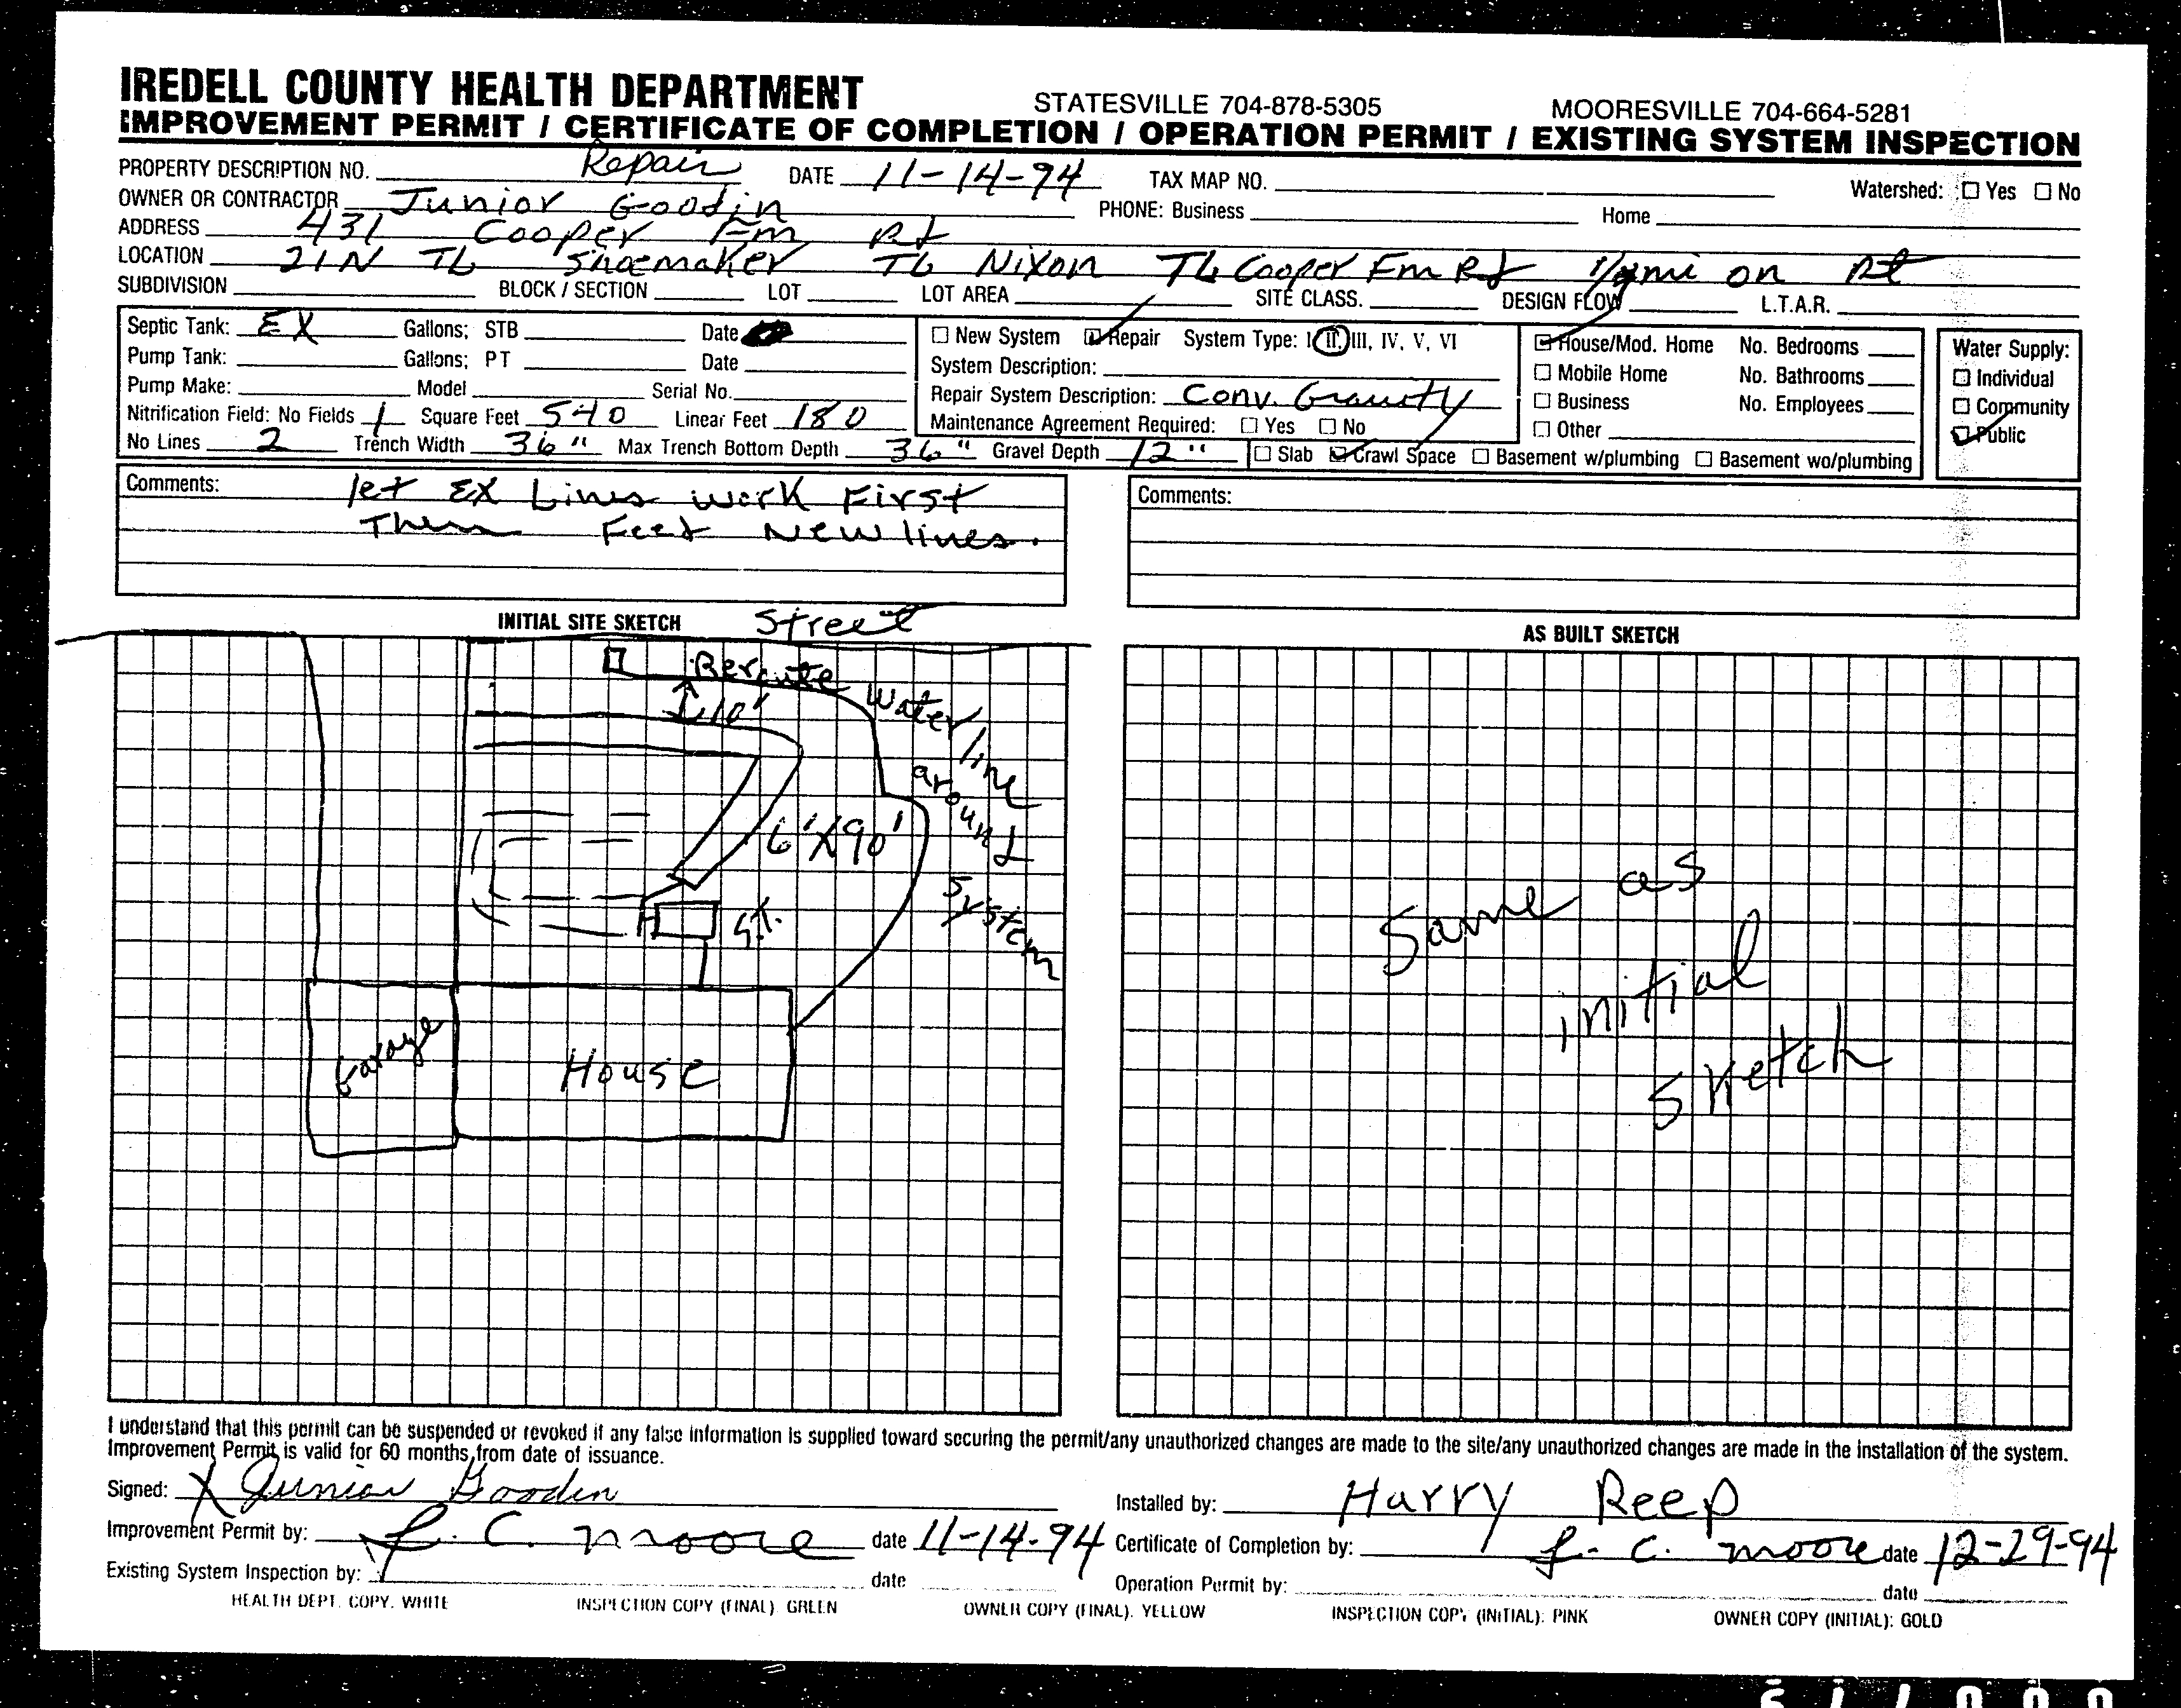 IREDELL COUNTY HEALTH DEPARTMENT STATESVILLE 704-878-5305 MOORESVILLE 704-664-5281
IMPROVEMENT PERMIT / CERTIFICATE OF COMPLETION / OPERATION PERMIT / EXISTING SYSTEM INSPECTION
PROPERTY DESCRIPTION NO. Repair DATE 11-14-94 TAX MAP NO. Watershed: ☐ Yes ☐ No
OWNER OR CONTRACTOR Junior Goodin PHONE: Business Home
ADDRESS 431 Cooper Fm Rd
LOCATION 21N TL Shoemaker TL Nixon TL Cooper Fm Rd mi on Rt
SUBDIVISION BLOCK / SECTION LOT LOT AREA SITE CLASS. DESIGN FLOW L.T.A.R.
Septic Tank: EX Gallons; STB Date
Pump Tank: Gallons; PT Date
Pump Make: Model Serial No.
Nitrification Field: No Fields 1 Square Feet 540 Linear Feet 180
No Lines 2 Trench Width 36" Max Trench Bottom Depth 36" Gravel Depth 12"
☐ New System ☑ Repair System Type: I, II, III, IV, V, VI
System Description:
Repair System Description: Conv. Gravity
Maintenance Agreement Required: ☐ Yes ☐ No
☐ Slab ☑ Crawl Space ☐ Basement w/plumbing ☐ Basement wo/plumbing
☑ House/Mod. Home No. Bedrooms
☐ Mobile Home No. Bathrooms
☐ Business No. Employees
☐ Other
Water Supply:
☐ Individual
☐ Community
☑ Public
Comments: let EX Lines work First
Then Feed New lines.
Comments:
INITIAL SITE SKETCH Street
Reroute water line around system
10'
6'X90'
S.T.
Garage
House
AS BUILT SKETCH
Same as
initial
sketch
I understand that this permit can be suspended or revoked if any false information is supplied toward securing the permit/any unauthorized changes are made to the site/any unauthorized changes are made in the installation of the system.
Improvement Permit is valid for 60 months from date of issuance.
Signed: X Junior Gooden
Installed by: Harry Reep
Improvement Permit by: L. C. Moore date 11-14-94
Certificate of Completion by: L. C. Moore date 12-29-94
Existing System Inspection by: date
Operation Permit by: date
HEALTH DEPT. COPY. WHITE INSPECTION COPY (FINAL). GREEN OWNER COPY (FINAL). YELLOW INSPECTION COPY (INITIAL): PINK OWNER COPY (INITIAL): GOLD